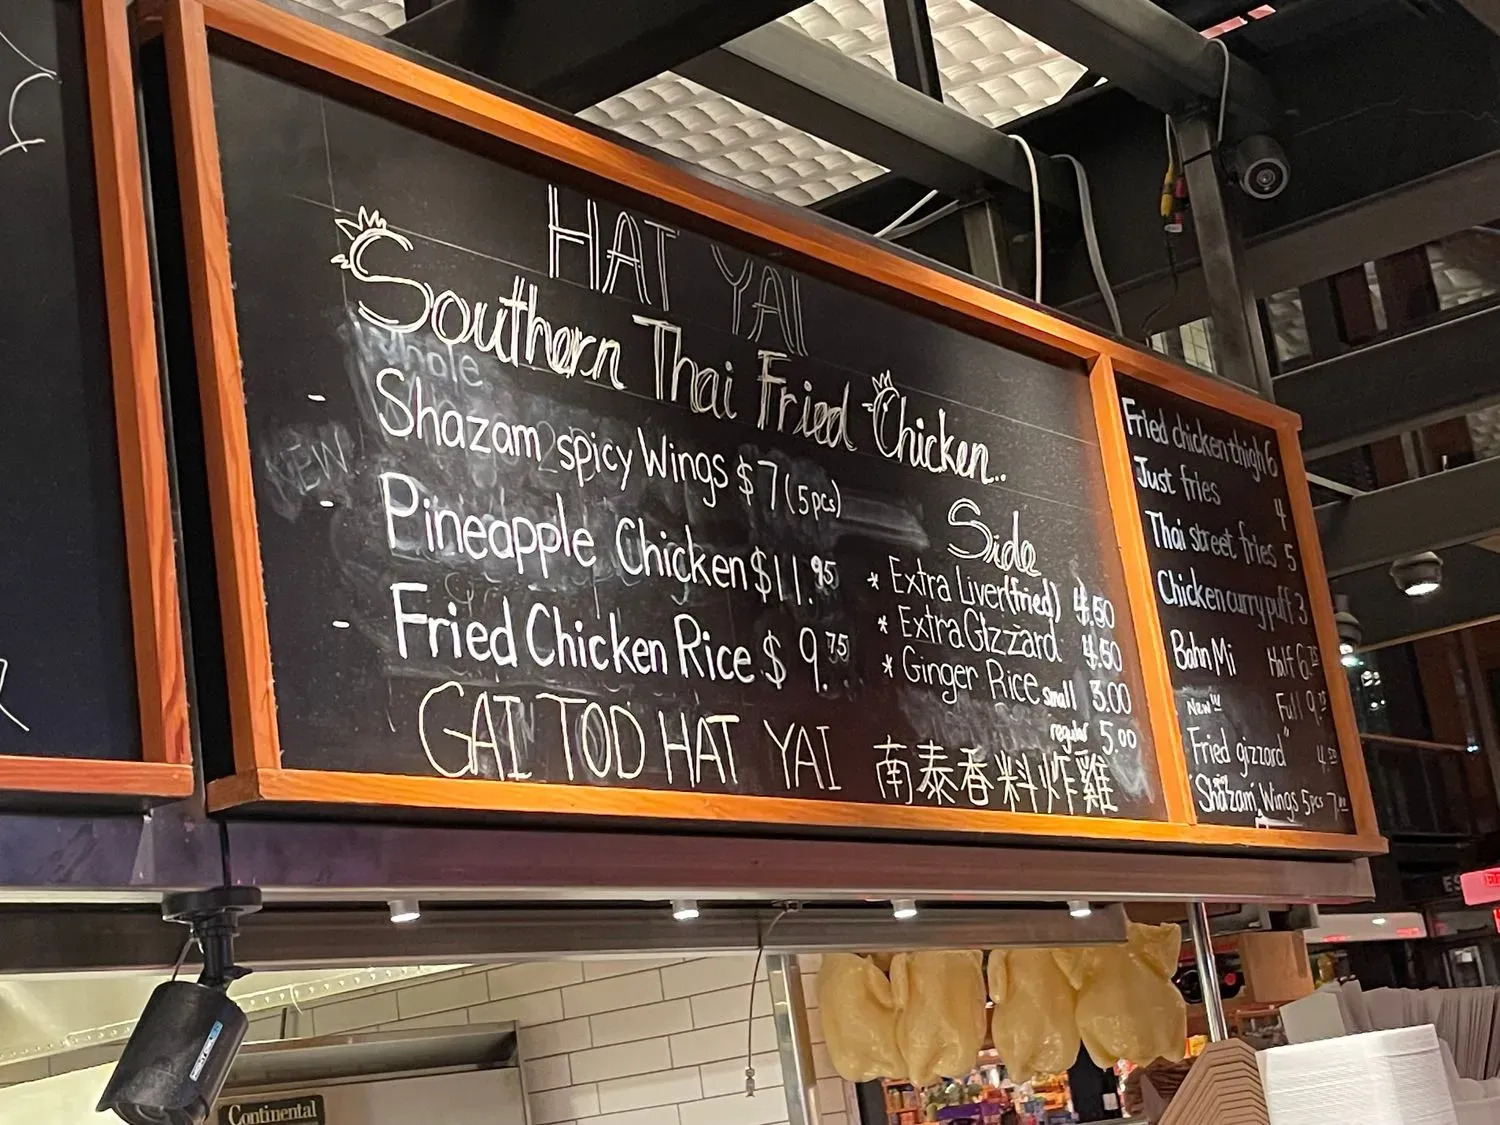 HAT YAI
Southern Thai Fried Chicken..
NEW!
- Shazam spicy Wings $7 (5pcs)
- Pineapple Chicken $11.95
- Fried Chicken Rice $9.75
Side
* Extra Liver(fried) 4.50
* Extra Gizzard 4.50
* Ginger Rice small 3.00
regular 5.00
GAI TOD HAT YAI 南泰香料炸雞
Fried chicken thigh 6
Just fries 4
Thai street fries 5
Chicken curry puff 3
Bahn Mi Half 6.75
Full 9.75
New"
Fried gizzard" 4.50
"Shazam Wings 5pcs 7.00
Continental